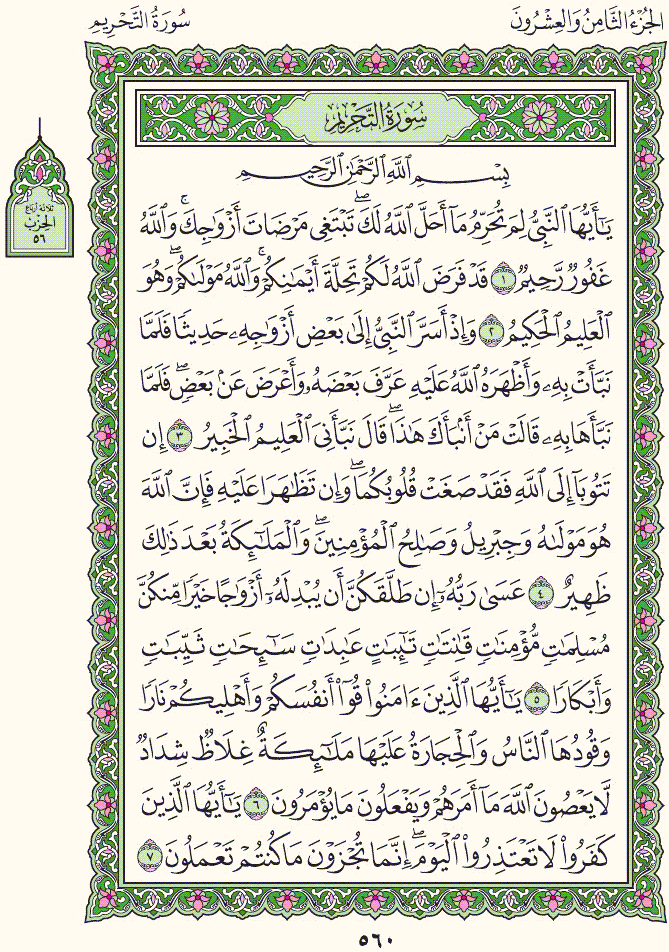 الجُزْءُ الثَّامِنُ وَالعِشْرُونَ
سُورَةُ التَّحْرِيمِ
سُورَةُ التَّحْرِيمِ
ثلاثة أرباع
الحزب
٥٦
بِسْمِ اللَّهِ الرَّحْمَٰنِ الرَّحِيمِ
يَٰٓأَيُّهَا ٱلنَّبِىُّ لِمَ تُحَرِّمُ مَآ أَحَلَّ ٱللَّهُ لَكَۖ تَبْتَغِى مَرْضَاتَ أَزْوَٰجِكَۚ وَٱللَّهُ
غَفُورٌ رَّحِيمٌ ١ قَدْ فَرَضَ ٱللَّهُ لَكُمْ تَحِلَّةَ أَيْمَٰنِكُمْۚ وَٱللَّهُ مَوْلَىٰكُمْۖ وَهُوَ
ٱلْعَلِيمُ ٱلْحَكِيمُ ٢ وَإِذْ أَسَرَّ ٱلنَّبِىُّ إِلَىٰ بَعْضِ أَزْوَٰجِهِۦ حَدِيثًا فَلَمَّا
نَبَّأَتْ بِهِۦ وَأَظْهَرَهُ ٱللَّهُ عَلَيْهِ عَرَّفَ بَعْضَهُۥ وَأَعْرَضَ عَنۢ بَعْضٍۖ فَلَمَّا
نَبَّأَهَا بِهِۦ قَالَتْ مَنْ أَنۢبَأَكَ هَٰذَاۖ قَالَ نَبَّأَنِىَ ٱلْعَلِيمُ ٱلْخَبِيرُ ٣ إِن
تَتُوبَآ إِلَى ٱللَّهِ فَقَدْ صَغَتْ قُلُوبُكُمَاۖ وَإِن تَظَٰهَرَا عَلَيْهِ فَإِنَّ ٱللَّهَ
هُوَ مَوْلَىٰهُ وَجِبْرِيلُ وَصَٰلِحُ ٱلْمُؤْمِنِينَۖ وَٱلْمَلَٰٓئِكَةُ بَعْدَ ذَٰلِكَ
ظَهِيرٌ ٤ عَسَىٰ رَبُّهُۥٓ إِن طَلَّقَكُنَّ أَن يُبْدِلَهُۥٓ أَزْوَٰجًا خَيْرًا مِّنكُنَّ
مُسْلِمَٰتٍ مُّؤْمِنَٰتٍ قَٰنِتَٰتٍ تَٰٓئِبَٰتٍ عَٰبِدَٰتٍ سَٰٓئِحَٰتٍ ثَيِّبَٰتٍ
وَأَبْكَارًا ٥ يَٰٓأَيُّهَا ٱلَّذِينَ ءَامَنُوا۟ قُوٓا۟ أَنفُسَكُمْ وَأَهْلِيكُمْ نَارًا
وَقُودُهَا ٱلنَّاسُ وَٱلْحِجَارَةُ عَلَيْهَا مَلَٰٓئِكَةٌ غِلَاظٌ شِدَادٌ
لَّا يَعْصُونَ ٱللَّهَ مَآ أَمَرَهُمْ وَيَفْعَلُونَ مَا يُؤْمَرُونَ ٦ يَٰٓأَيُّهَا ٱلَّذِينَ
كَفَرُوا۟ لَا تَعْتَذِرُوا۟ ٱلْيَوْمَۖ إِنَّمَا تُجْزَوْنَ مَا كُنتُمْ تَعْمَلُونَ ٧
٥٦٠